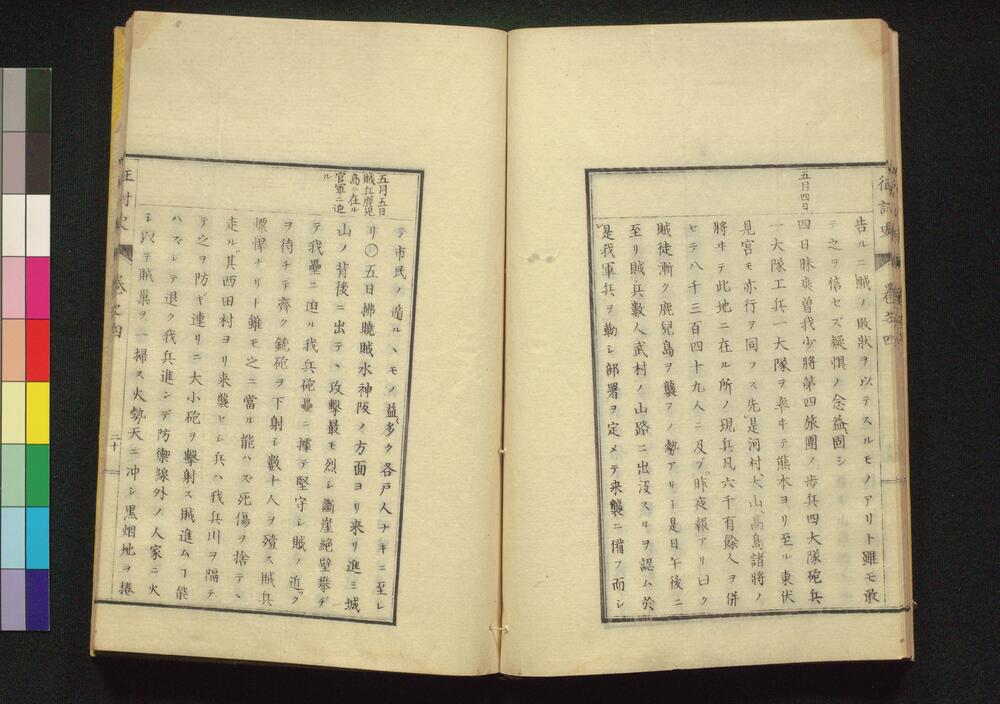 五月四日
告ルニ賊ノ敗状ヲ以テスルモノアリト雖モ敢
テ之ヲ信セズ疑惧ノ念益〻固シ
四日昧爽曽我少將第四旅團ノ歩兵四大隊砲兵
一大隊工兵一大隊ヲ率ヰテ熊本ヨリ至ル東伏
見宮モ亦行ヲ同フス先是河村、大山、高島諸將ノ
將ヰテ此地ニ在ル所ノ現兵凡六千有餘人ヲ併
セテ八千三百四十九人ニ及ブ昨夜報アリ曰ク
賊徒漸ク鹿兒島ヲ襲フノ勢アリト是日午後ニ
至リ賊兵數人武村ノ山路ニ出沒スルヲ認ム於
是我軍兵ヲ勒シ部署ヲ定メテ来襲ニ備フ而シ
五月五日
賊兵鹿兒
島ニ在ル
官軍ニ迫
ル
テ市民ノ遁ルヽモノ益〻多ク各戸人ナキニ至レ
リ○五日拂曉賊水神阪ノ方面ヨリ来リ進ミ城
山ノ背後ニ出テヽ攻擊最モ烈シ斷崖絶壁攀ヂ
テ我壘ニ迫ル我兵砲壘ニ據テ堅守シ賊ノ近ヅク
ヲ待チテ齊ク銃砲ヲ下射シ數十人ヲ殪ス賊兵
慓悍ナリト雖モ之ニ當ル能ハズ死傷ヲ捨テヽ
走ル其西田村ヨリ来襲セシ兵ハ我兵川ヲ隔テ
テ之ヲ防ギ連リニ大小砲ヲ擊射ス賊進ムヿ能
ハズシテ退ク我兵進ンデ防禦線外ノ人家ニ火
シテ賊巢ヲ一掃ス火勢天ニ冲シ黒烟地ヲ捲
征討史
巻之四
二十